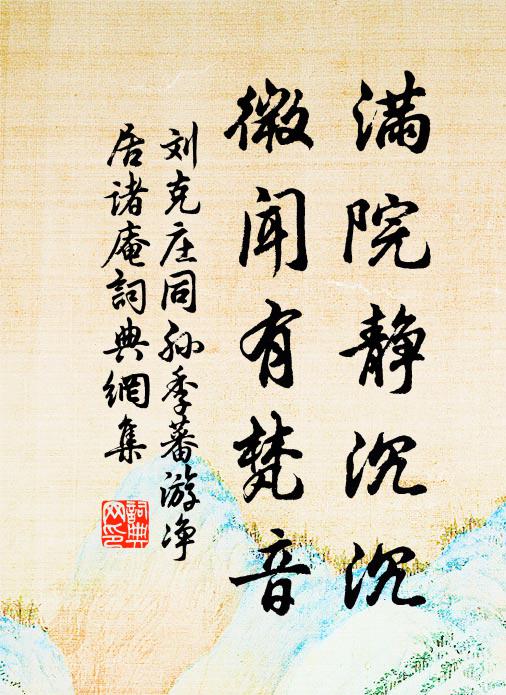 满院静沉沉
微闻有梵音
刘克庄同孙季蕃游净
居诸庵词典网集
词典网印